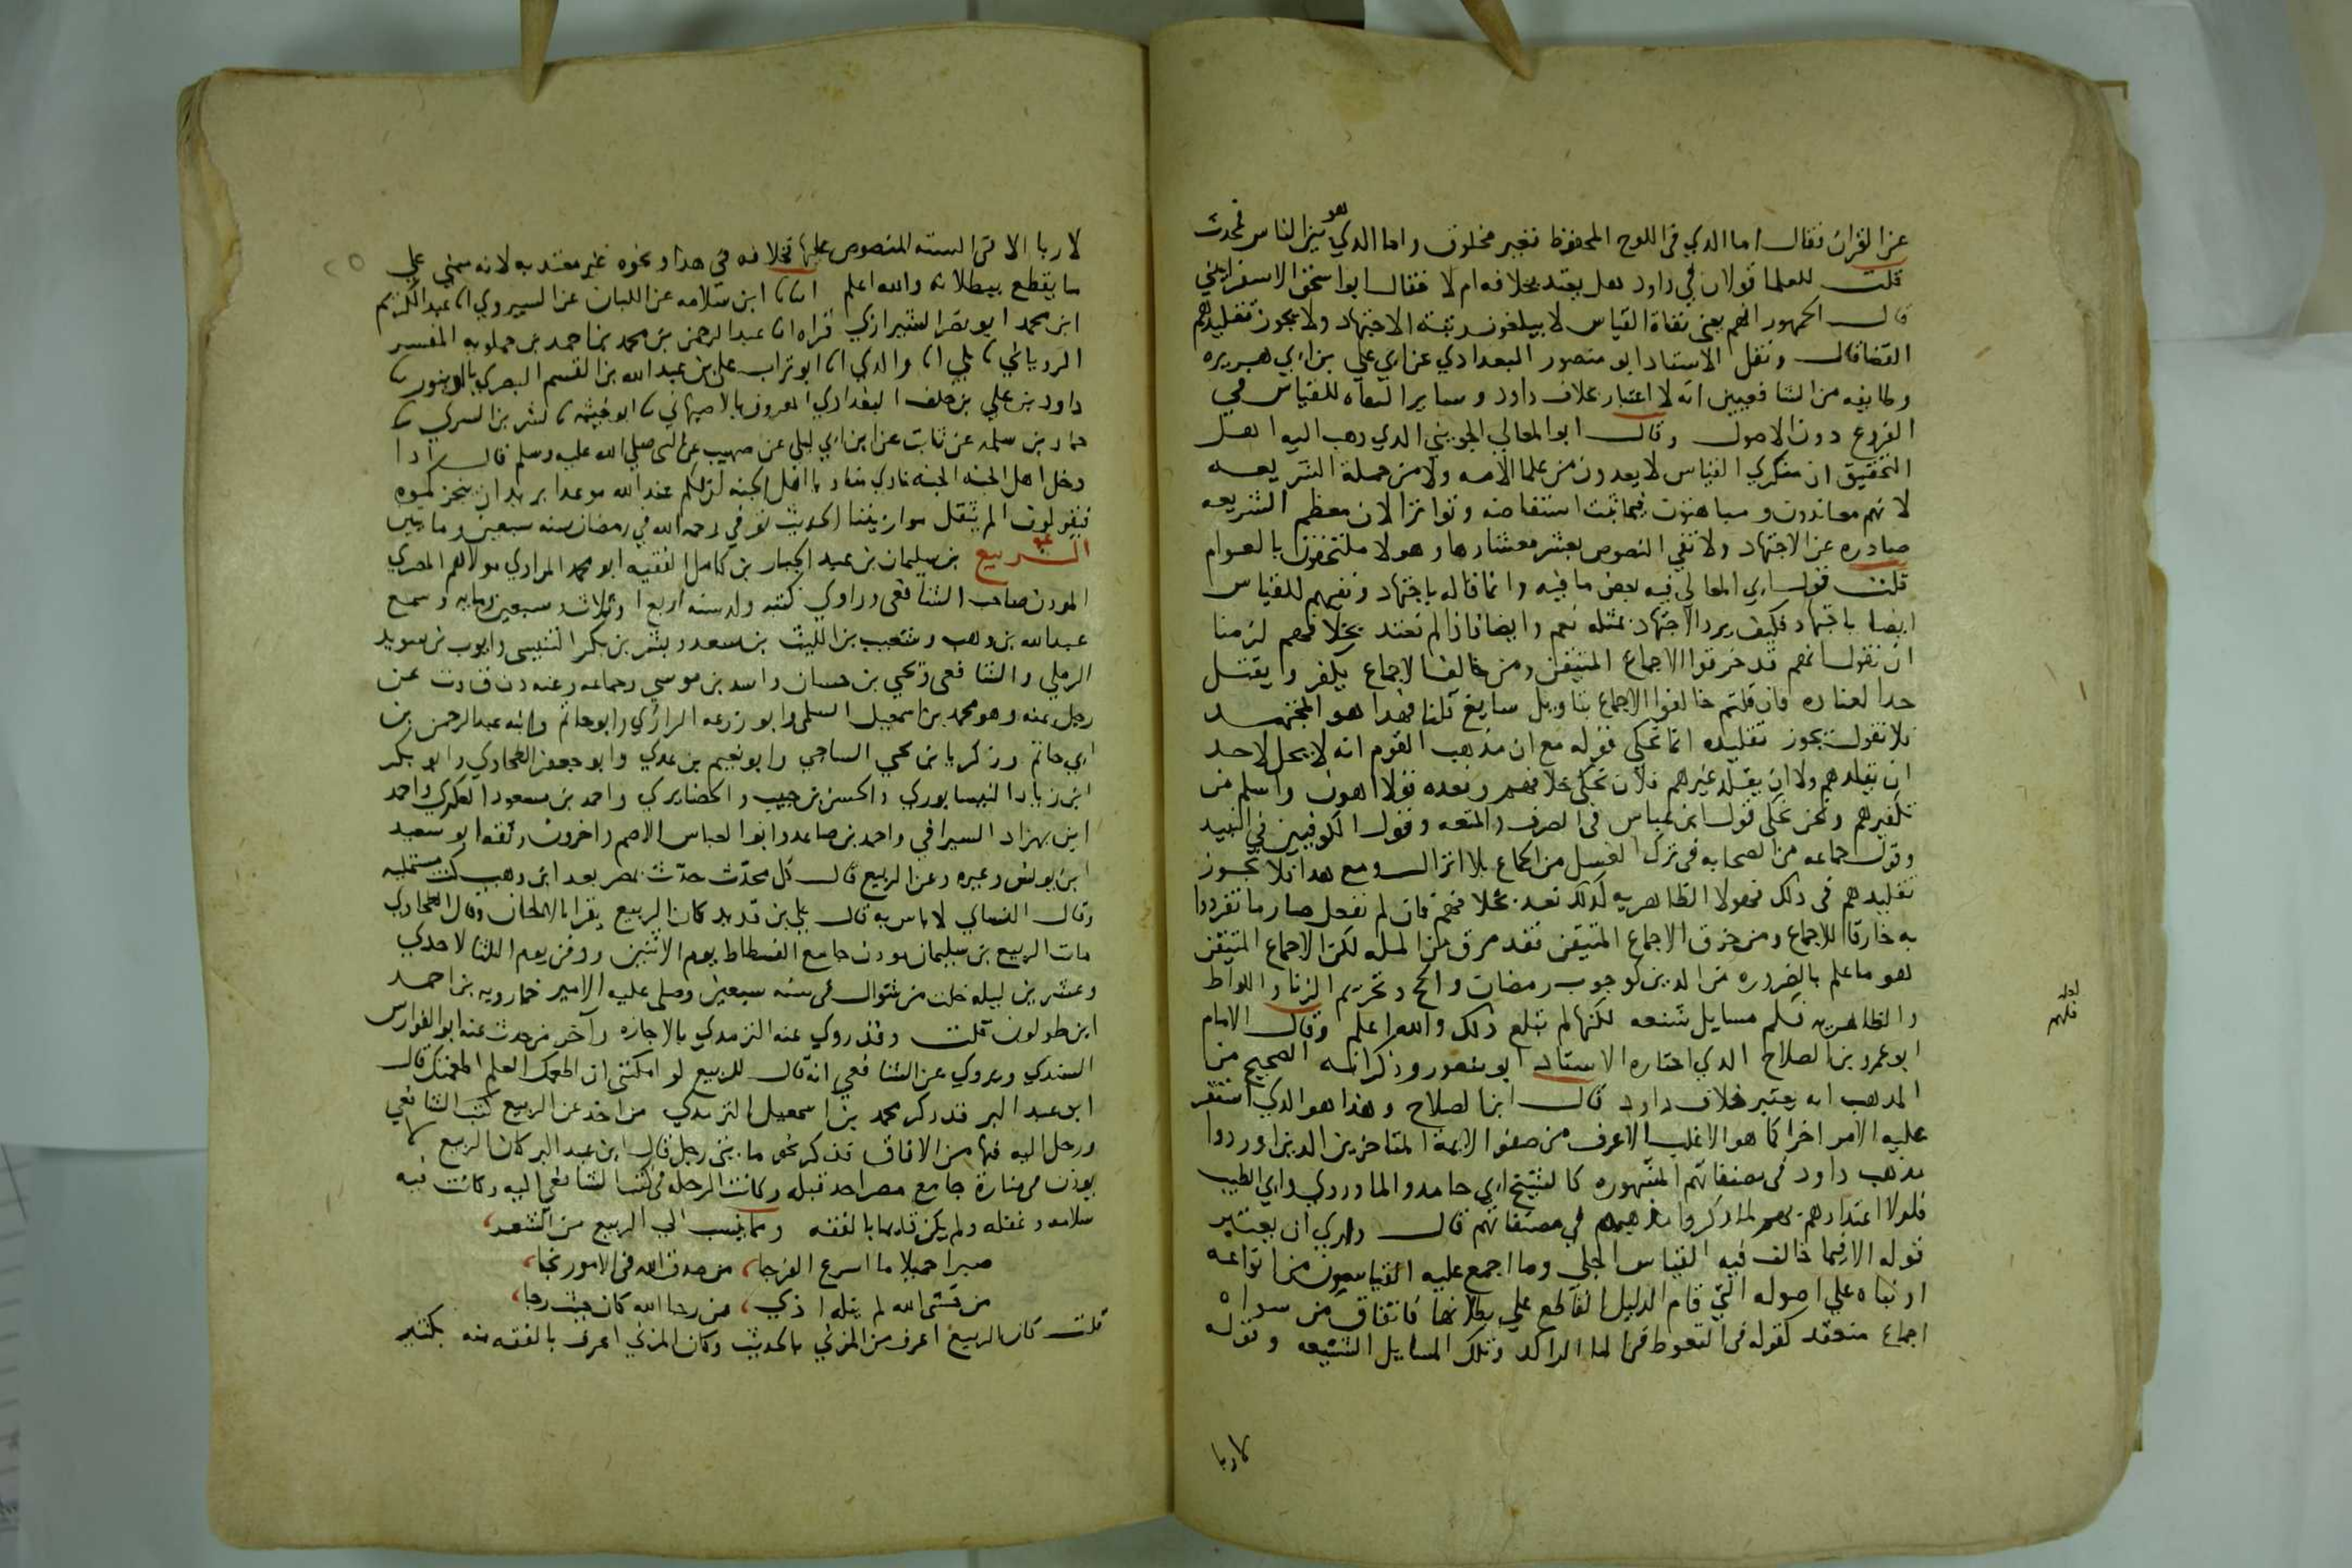 عن القران فقال اما الذي في اللوح المحفوظ فغير مخلوق واما الذي هو بين الناس فمحدث
قلت للعلما قولان في داود هل يعتد بخلافه ام لا فقال ابو اسحق الاسفرايني
قال الجمهور انهم يعني نفاة القياس لا يبلغون رتبة الاجتهاد ولا يجوز تقليدهم
القضا قال ونقل الاستاد ابو منصور البغدادي عن ابي علي بن ابي هريره
وطايفه من الشافعيين انه لا اعتبار بخلاف داود وساير النفاه للقياس في
الفروع دون الاصول وقال ابو المعالي الجويني الذي ذهب اليه اهل
التحقيق ان منكري القياس لا يعدون من علما الامه ولا من حملة الشريعه
لانهم معاندون ومباهتون فيما ثبت استفاضه وتواترا لان معظم الشريعه
صادره عن الاجتهاد ولا تفي النصوص بعشر معشارها وهولا ملتحقون بالعوام
قلت قول ابي المعالي فيه بعض ما فيه وانما قاله باجتهاد ونفيهم للقياس
ايضا باجتهاد فكيف يرد الاجتهاد بمثله نعم وايضا فاذا لم نعتد بخلافهم لزمنا
ان نقول انهم قد خرقوا الاجماع المتيقن ومن خالف الاجماع يكفر ويقتل
حدا لعناده فان قلتم خالفوا الاجماع بتاويل سايغ قلنا فهذا هو المجتهد
فلا نقول يجوز تقليده انما نحكي قوله مع ان مذهب القوم انه لا يحل لاحد
ان يقلدهم ولا ان يقلد غيرهم فلان نحكي خلافهم ونعده قولا اهون واسلم من
تكفيرهم ونحن نحكي قول ابن عباس في الصرف والمتعه وقول الكوفيين في النبيد
وقول جماعه من الصحابه في ترك الغسل من الجماع بلا انزال ومع هذا فلا يجوز
تقليدهم في ذلك فهولا الظاهريه كذلك نعد بخلافهم فان لم نفعل صار ما تفردوا
به خارقا للاجماع ومن خرق الاجماع المتيقن فقد مرق من المله لكن الاجماع المتيقن
هو ما علم بالضروره من الدين كوجوب رمضان والحج وتحريم الزنا واللواط
والظاهريه فلهم مسايل شنعه لكنها لم تبلغ ذلك والله اعلم وقال الامام
ابو عمرو بن الصلاح الذي اختاره الاستاد ابو منصور وذكر انه الصحيح من
المذهب انه يعتبر خلاف داود قال ابن الصلاح وهذا هو الذي استقر
عليه الامر اخرا كما هو الاغلب الاعرف من صفو الايمة المتاخرين الذين اوردوا
مذهب داود في مصنفاتهم المشهوره كالشيخ ابي حامد والماوردي وابي الطيب
فلولا اعتدادهم بهم لما ذكروا مذهبهم في مصنفاتهم قال واري ان يعتبر
قوله الا فيما خالف فيه القياس الجلي وما اجمع عليه القياسيون من انواعه
او بناه علي اصوله التي قام الدليل القاطع علي بطلانها فاتفاق من سواه
اجماع منعقد كقوله في التغوط في الما الراكد وتلك المسايل الشنيعه وقوله
لاربا
لا ربا الا في السته المنصوص عليها فخلافه في هذا ونحوه غير معتد به لانه مبني علي
ما يقطع ببطلانه والله اعلم انبانا ابن سلامه عن اللبان عن الشيروي انا عبد الكريم
ابن محمد ابو نصر الشيرازي قراه انا عبد الرحمن بن محمد بن احمد بن حمدويه المفسر
الروياني بلي انا والدي انا ابو تراب علي بن عبد الله بن القسم البصري بالدينور
داود بن علي بن خلف البغدادي المعروف بالاصبهاني ابو خيثمه بشر بن السري
حماد بن سلمه عن ثابت عن ابن ابي ليلي عن صهيب عن النبي صلي الله عليه وسلم قال اذا
دخل اهل الجنه الجنه نادي مناد يا اهل الجنه ان لكم عند الله موعدا يريد ان ينجزكموه
فيقولون الم يثقل موازيننا الحديث توفي رحمه الله في رمضان سنه سبعين ومايتين
الربيع بن سليمان بن عبد الجبار بن كامل الفقيه ابو محمد المرادي مولاهم المصري
المودن صاحب الشافعي وراوي كتبه ولد سنه اربع او ثلاث وسبعين ومايه وسمع
عبد الله بن وهب وشعيب بن الليث بن سعد وبشر بن بكر التنيسي وايوب بن سويد
الرملي والشافعي ويحيي بن حسان واسد بن موسي وجماعه وعنه د ن ق و ت عن
رجل عنه وهو محمد بن اسمعيل السلمي وابو زرعه الرازي وابو حاتم وابنه عبد الرحمن بن
ابي حاتم وزكريا بن يحي الساجي وابو نعيم بن عدي وابو جعفر الطحاوي وابو بكر
ابن زياد النيسابوري والحسن بن حبيب الحضايري واحمد بن مسعود العكري واحمد
ابن بهزاد السيرافي واحمد بن صاعد وابو العباس الاصم واخرون وثقه ابو سعيد
ابن يونس وغيره وعن الربيع قال كل محدث حدث بمصر بعد ابن وهب كنت مستمليه
وقال النسائي لا باس به قال علي بن قديد كان الربيع يقرا بالالحان وقال الطحاوي
مات الربيع بن سليمان مودن جامع الفسطاط يوم الاثنين ودفن يوم الثلثا لاحدي
وعشرين ليله خلت من شوال في سنه سبعين وصلي عليه الامير خمارويه بن احمد
ابن طولون قلت وقد روي عنه الترمدي بالاجازه وآخر من حدث عنه ابو الفوارس
السندي ويروي عن الشافعي انه قال للربيع لو امكنني ان اطعمك العلم اطعمتك قال
ابن عبد البر قد ذكر محمد بن اسمعيل الترمدي من اخذ عن الربيع كتب الشافعي
ورحل اليه فيها من الافاق فذكر نحو مايتي رجل قال ابن عبد البر كان الربيع لا
يوذن في منارة جامع مصر احد قبله وكانت الرحله في كتب الشافعي اليه وكانت فيه
سلامه وغفله ولم يكن قايما بالفقه ومما ينسب الي الربيع من الشعر
صبرا جميلا ما اسرع الفرجا، من صدق الله في الامور نجا،
من خشي الله لم ينله اذي، من رجا الله كان حيث رجا،
قلت كان الربيع اعرف من المزني بالحديث وكان المزني اعرف بالفقه منه بكثير